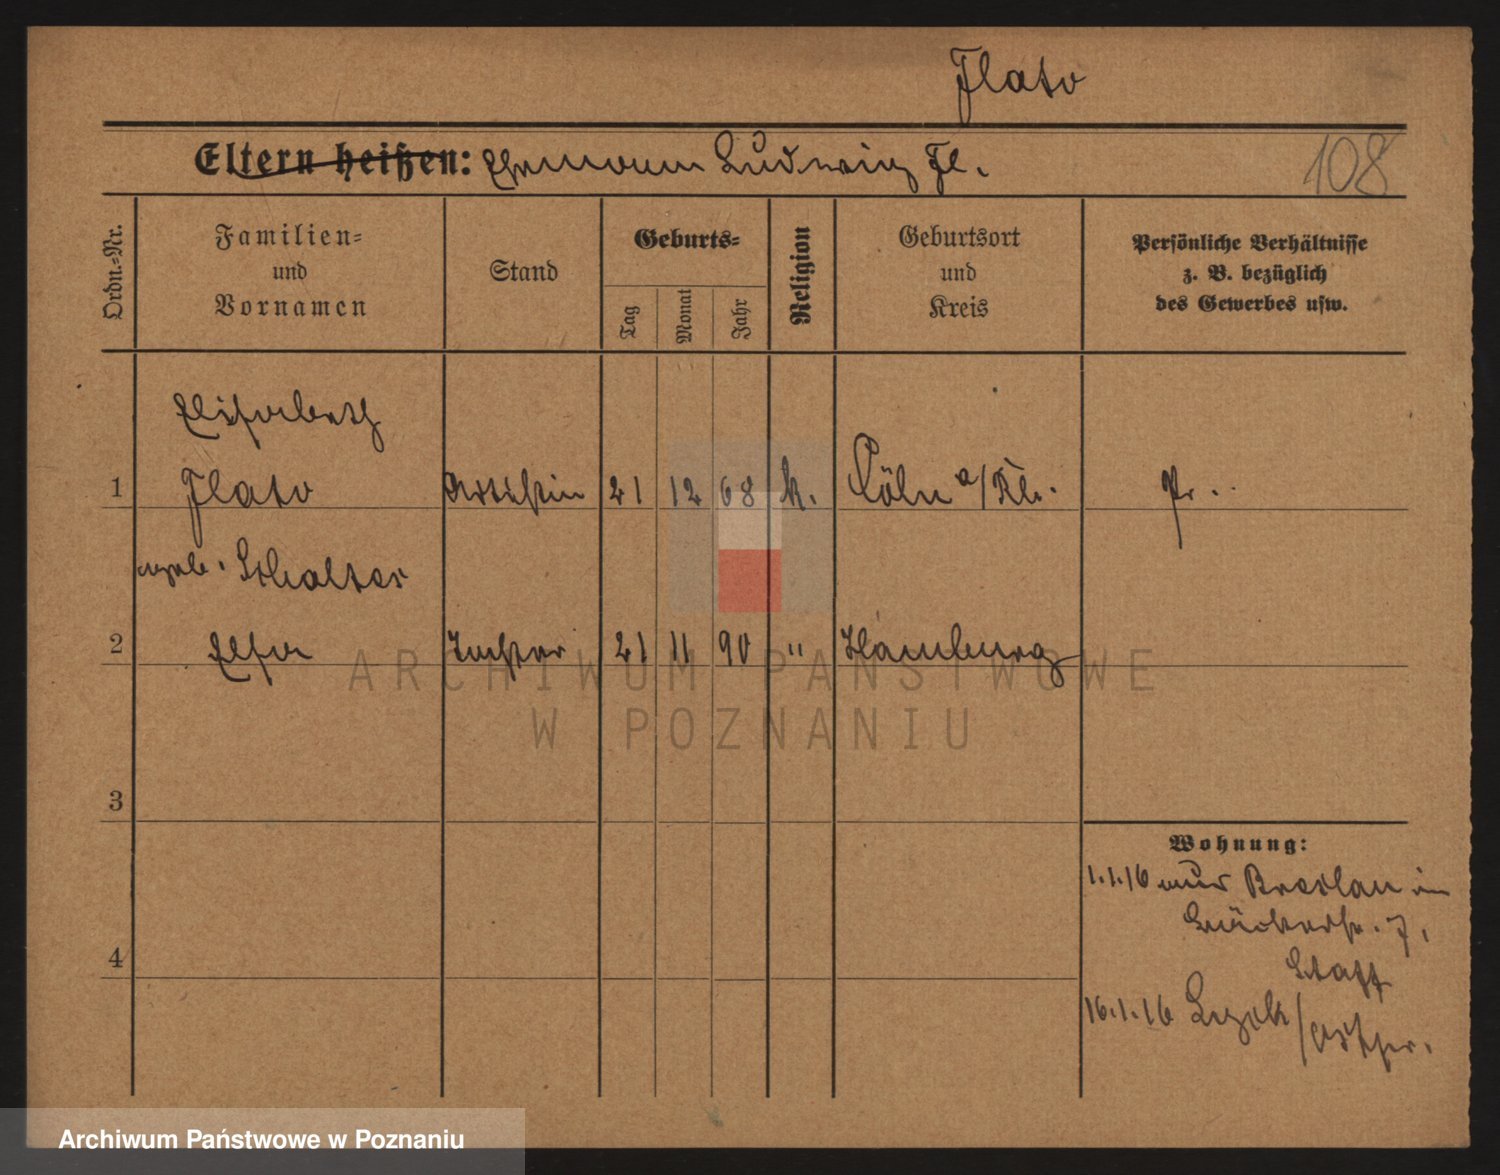 Flato
Eltern heißen: Ehemann Ludwig Fl.
108
Ordn.=Nr.
Familien=
und
Vornamen
Stand
Geburts=
Tag
Monat
Jahr
Religion
Geburtsort
und
Kreis
Persönliche Verhältnisse
z. B. bezüglich
des Gewerbes usw.
Elisabeth
1 Flato Artistin 21 12 68 k. Cöln a/Rh. Pr.
geb. Schalter
2 Elsa Tochter 21 11 90 " Hamburg
ARCHIWUM PAŃSTWOWE
W POZNANIU
3
Wohnung:
1.1.16 aus Breslau in
7,
4
16.1.16 Lyck/Ostpr.
Archiwum Państwowe w Poznaniu